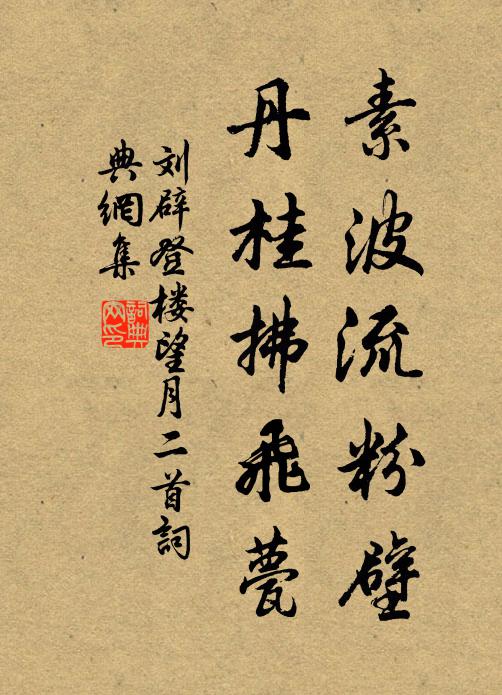 素波流粉壁
丹桂拂飛甍
刘辟登楼望月二首詞
典網集
詞典網印